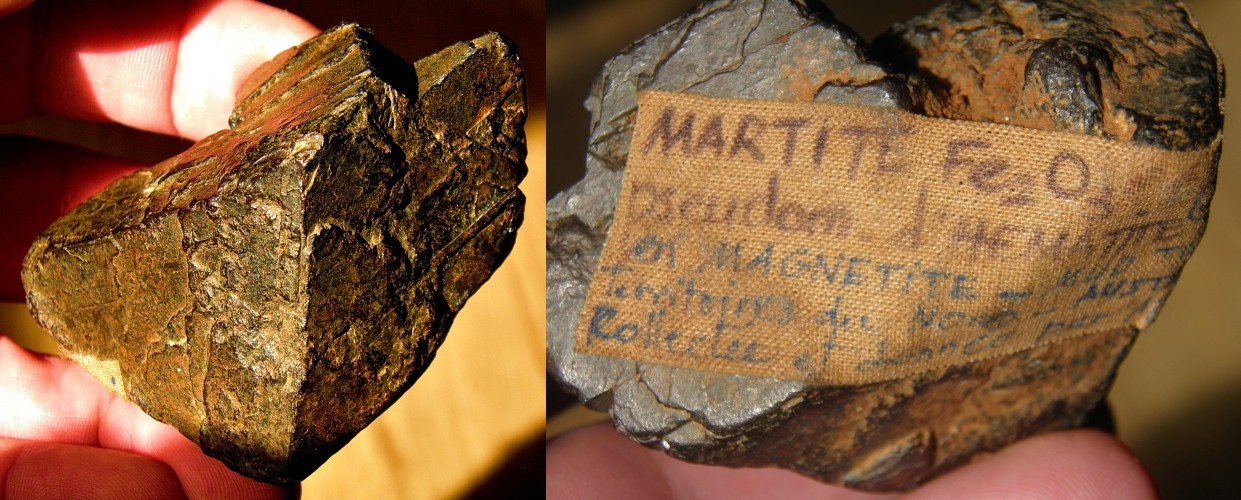 MARTITE Fe2O3
pseudom. d'HEMATITE
on MAGNETITE -
Territoires du Nord
Collectée et